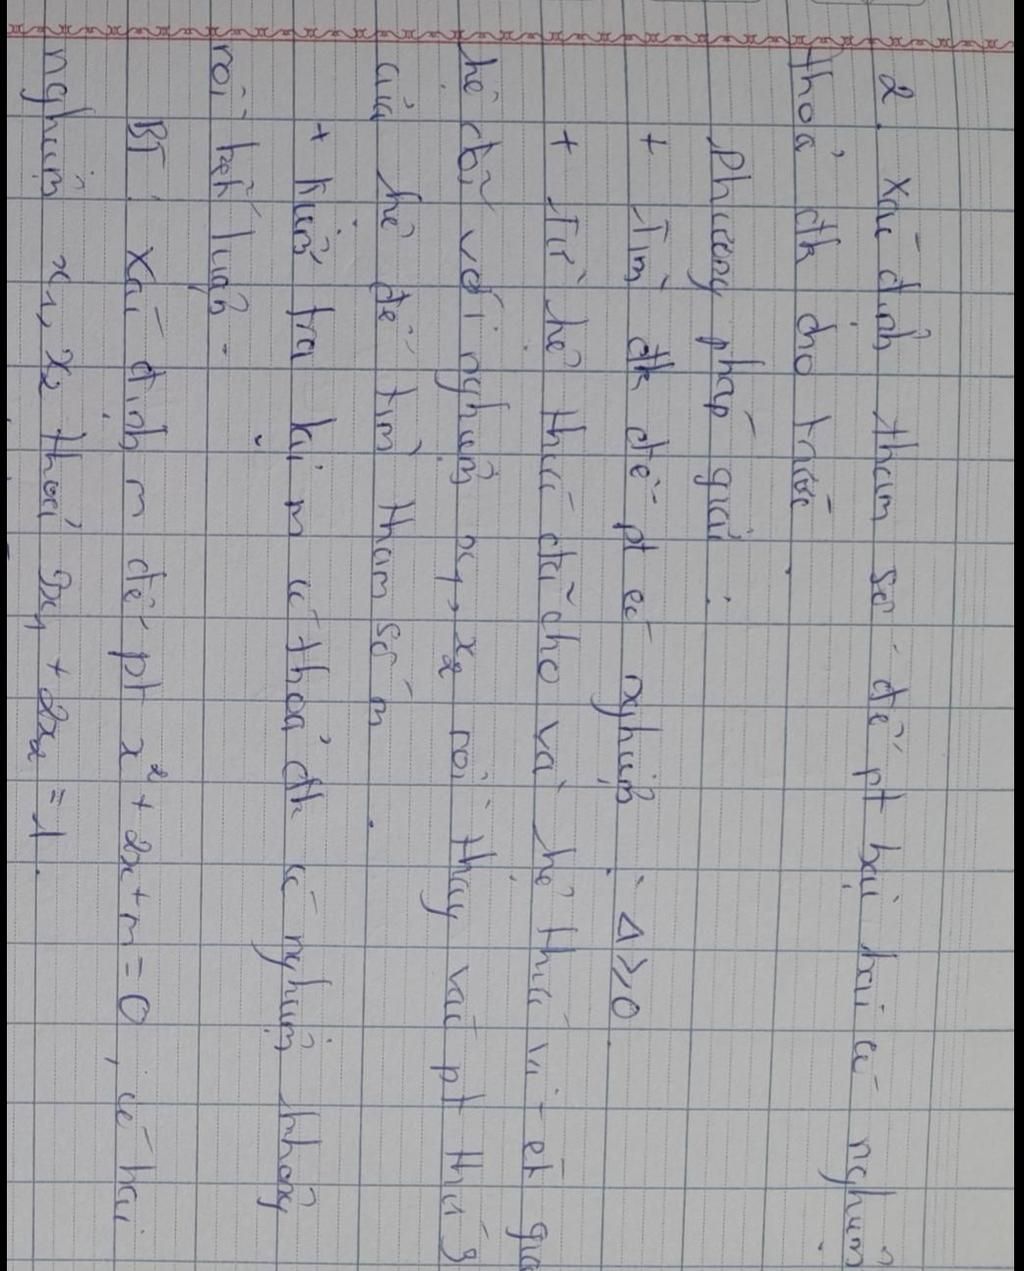 2. Xác định tham số để pt bậc hai có nghiệm
thoả đk cho trước.
Phương pháp giải:
+ Tìm đk để pt có nghiệm: Δ ≥ 0.
+ Từ hệ thức đã cho và hệ thức vi-ét giải
hệ đối với nghiệm x₁, x₂ rồi thay vào pt thứ 3
của hệ để tìm tham số m.
+ Kiểm tra lại m có thoả đk có nghiệm không
rồi kết luận.
BT: Xác định m để pt x² + 2x + m = 0, có hai
nghiệm x₁, x₂ thoả 3x₁ + 2x₂ = 1.